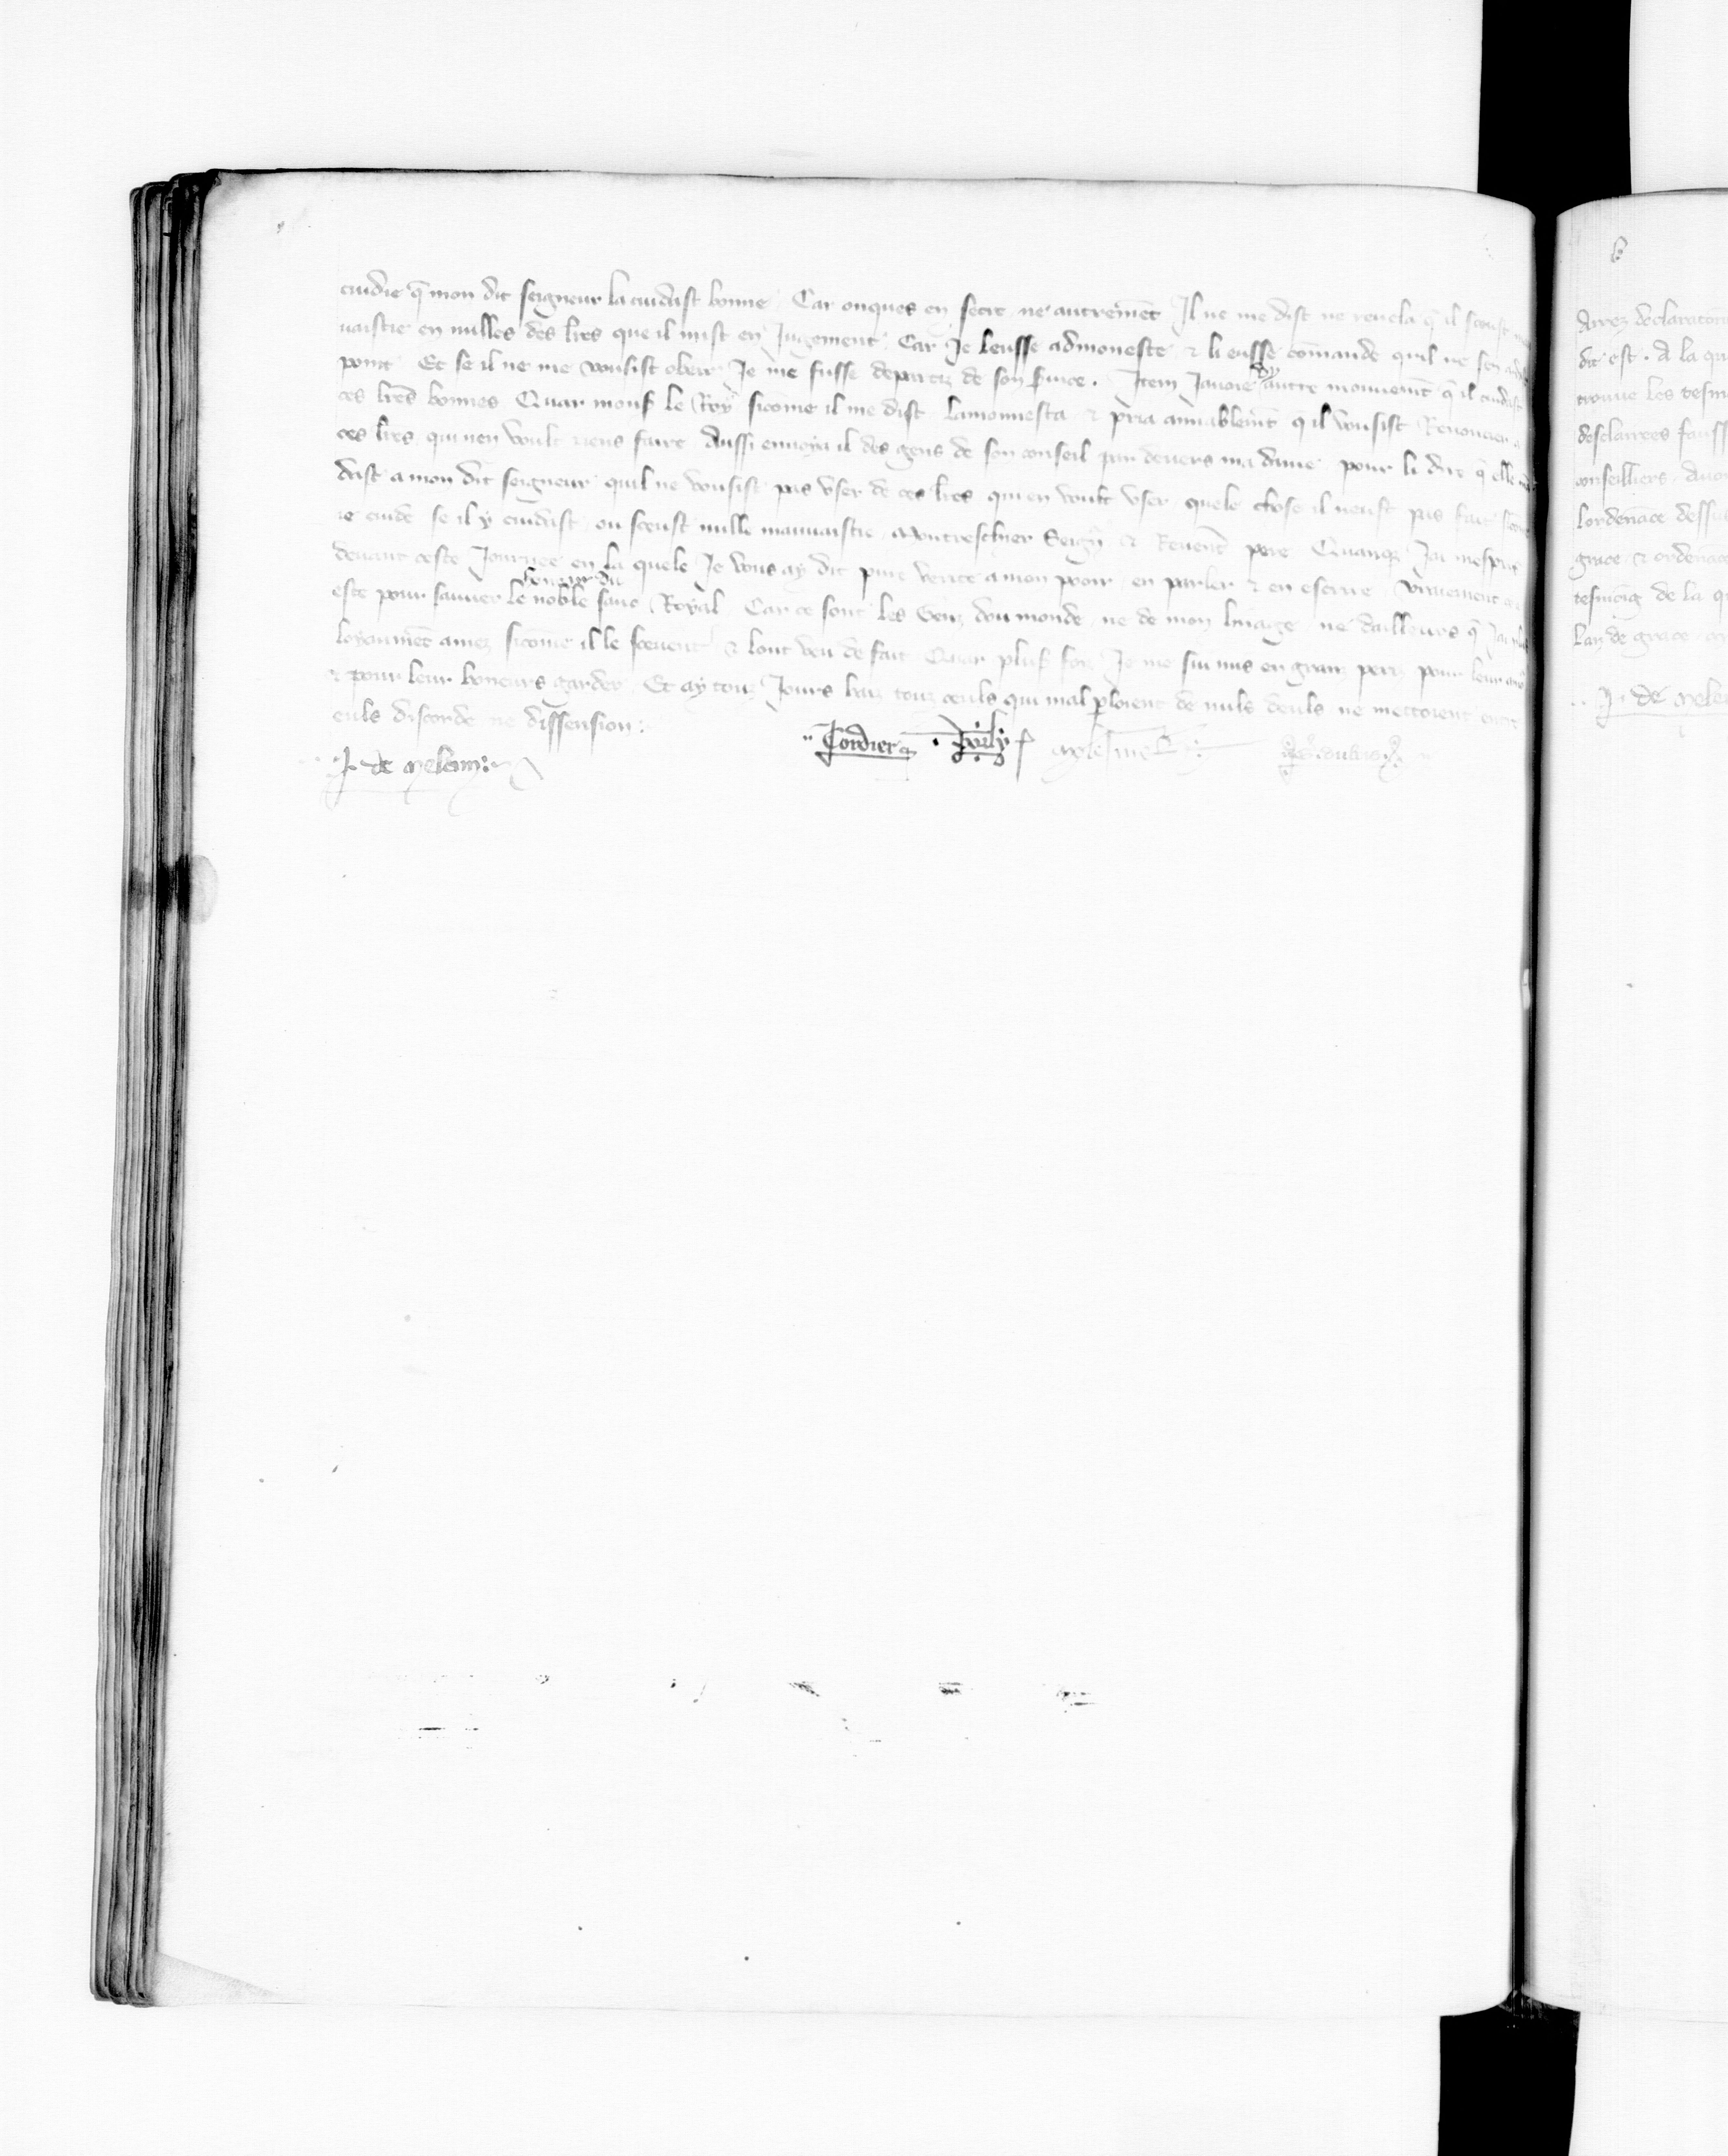 cuidie q̄ mon dit seigneur la cuidast bonne Car onques en secre ne autremēt Il ne me dist ne reuela q̄ il sceust
uaistie en nulles des lr̄es que il mist en Jugement Car Je leusse admoneste & li eusse cōmande quil ne sen
point Et se il ne me vousist obeir Je me fusse departiz de son s̄uice . Item Jauoie dy autre mouuemēt q̄ il cuidast
ces lr̄es bonnes Quar mons̄ le Roy sicōme il me dist lamonnesta & pria amiablemēt q̄ il vousist Renoncier a
ces lr̄es qui nen voult riens faire Aussi enuoya il des gens de son conseil par deuers ma dame pour li dire q̄ elle
deist a mon dit seigneur quil ne vousist pas vser de ces lr̄es qui en voult vser quele chose il neust pas fait
ie cuide se il y cuidast ou sceust nulle mauuaistie Montreschier Seigr̄ & Reuerēt pere Quanq̄ Jai mespris
deuant ceste Journee en la quele Je vous ay dit pure verite a mon pooir en parler & en escrire vraiement
este pour sauuer le honeur du noble sanc Royal Car ce sont les Genz dou monde ne de mon linaige ne dailleurs q̄ Jai plus
loyaumēt amez sicōme il le sceuent & lont veu de fait Quar plus̄ foiz Je me sui mis en granz periz pour leur
& pour leur honeurs garder Et ay touz Jours haiz touz ceuls qui mal ploient de nuls deuls ne mettoient entre
euls discorde ne dissension :
J. de Meleun : Cordier . Fourly
b
Arrez declaratoire
dit est . A la qu
trouue les tesm
desclairees fauss
conseilliers . Auo
lordenāce dessus
grace & ordenāce
tesmoig de la q
Lan de grace
J. de Meleu